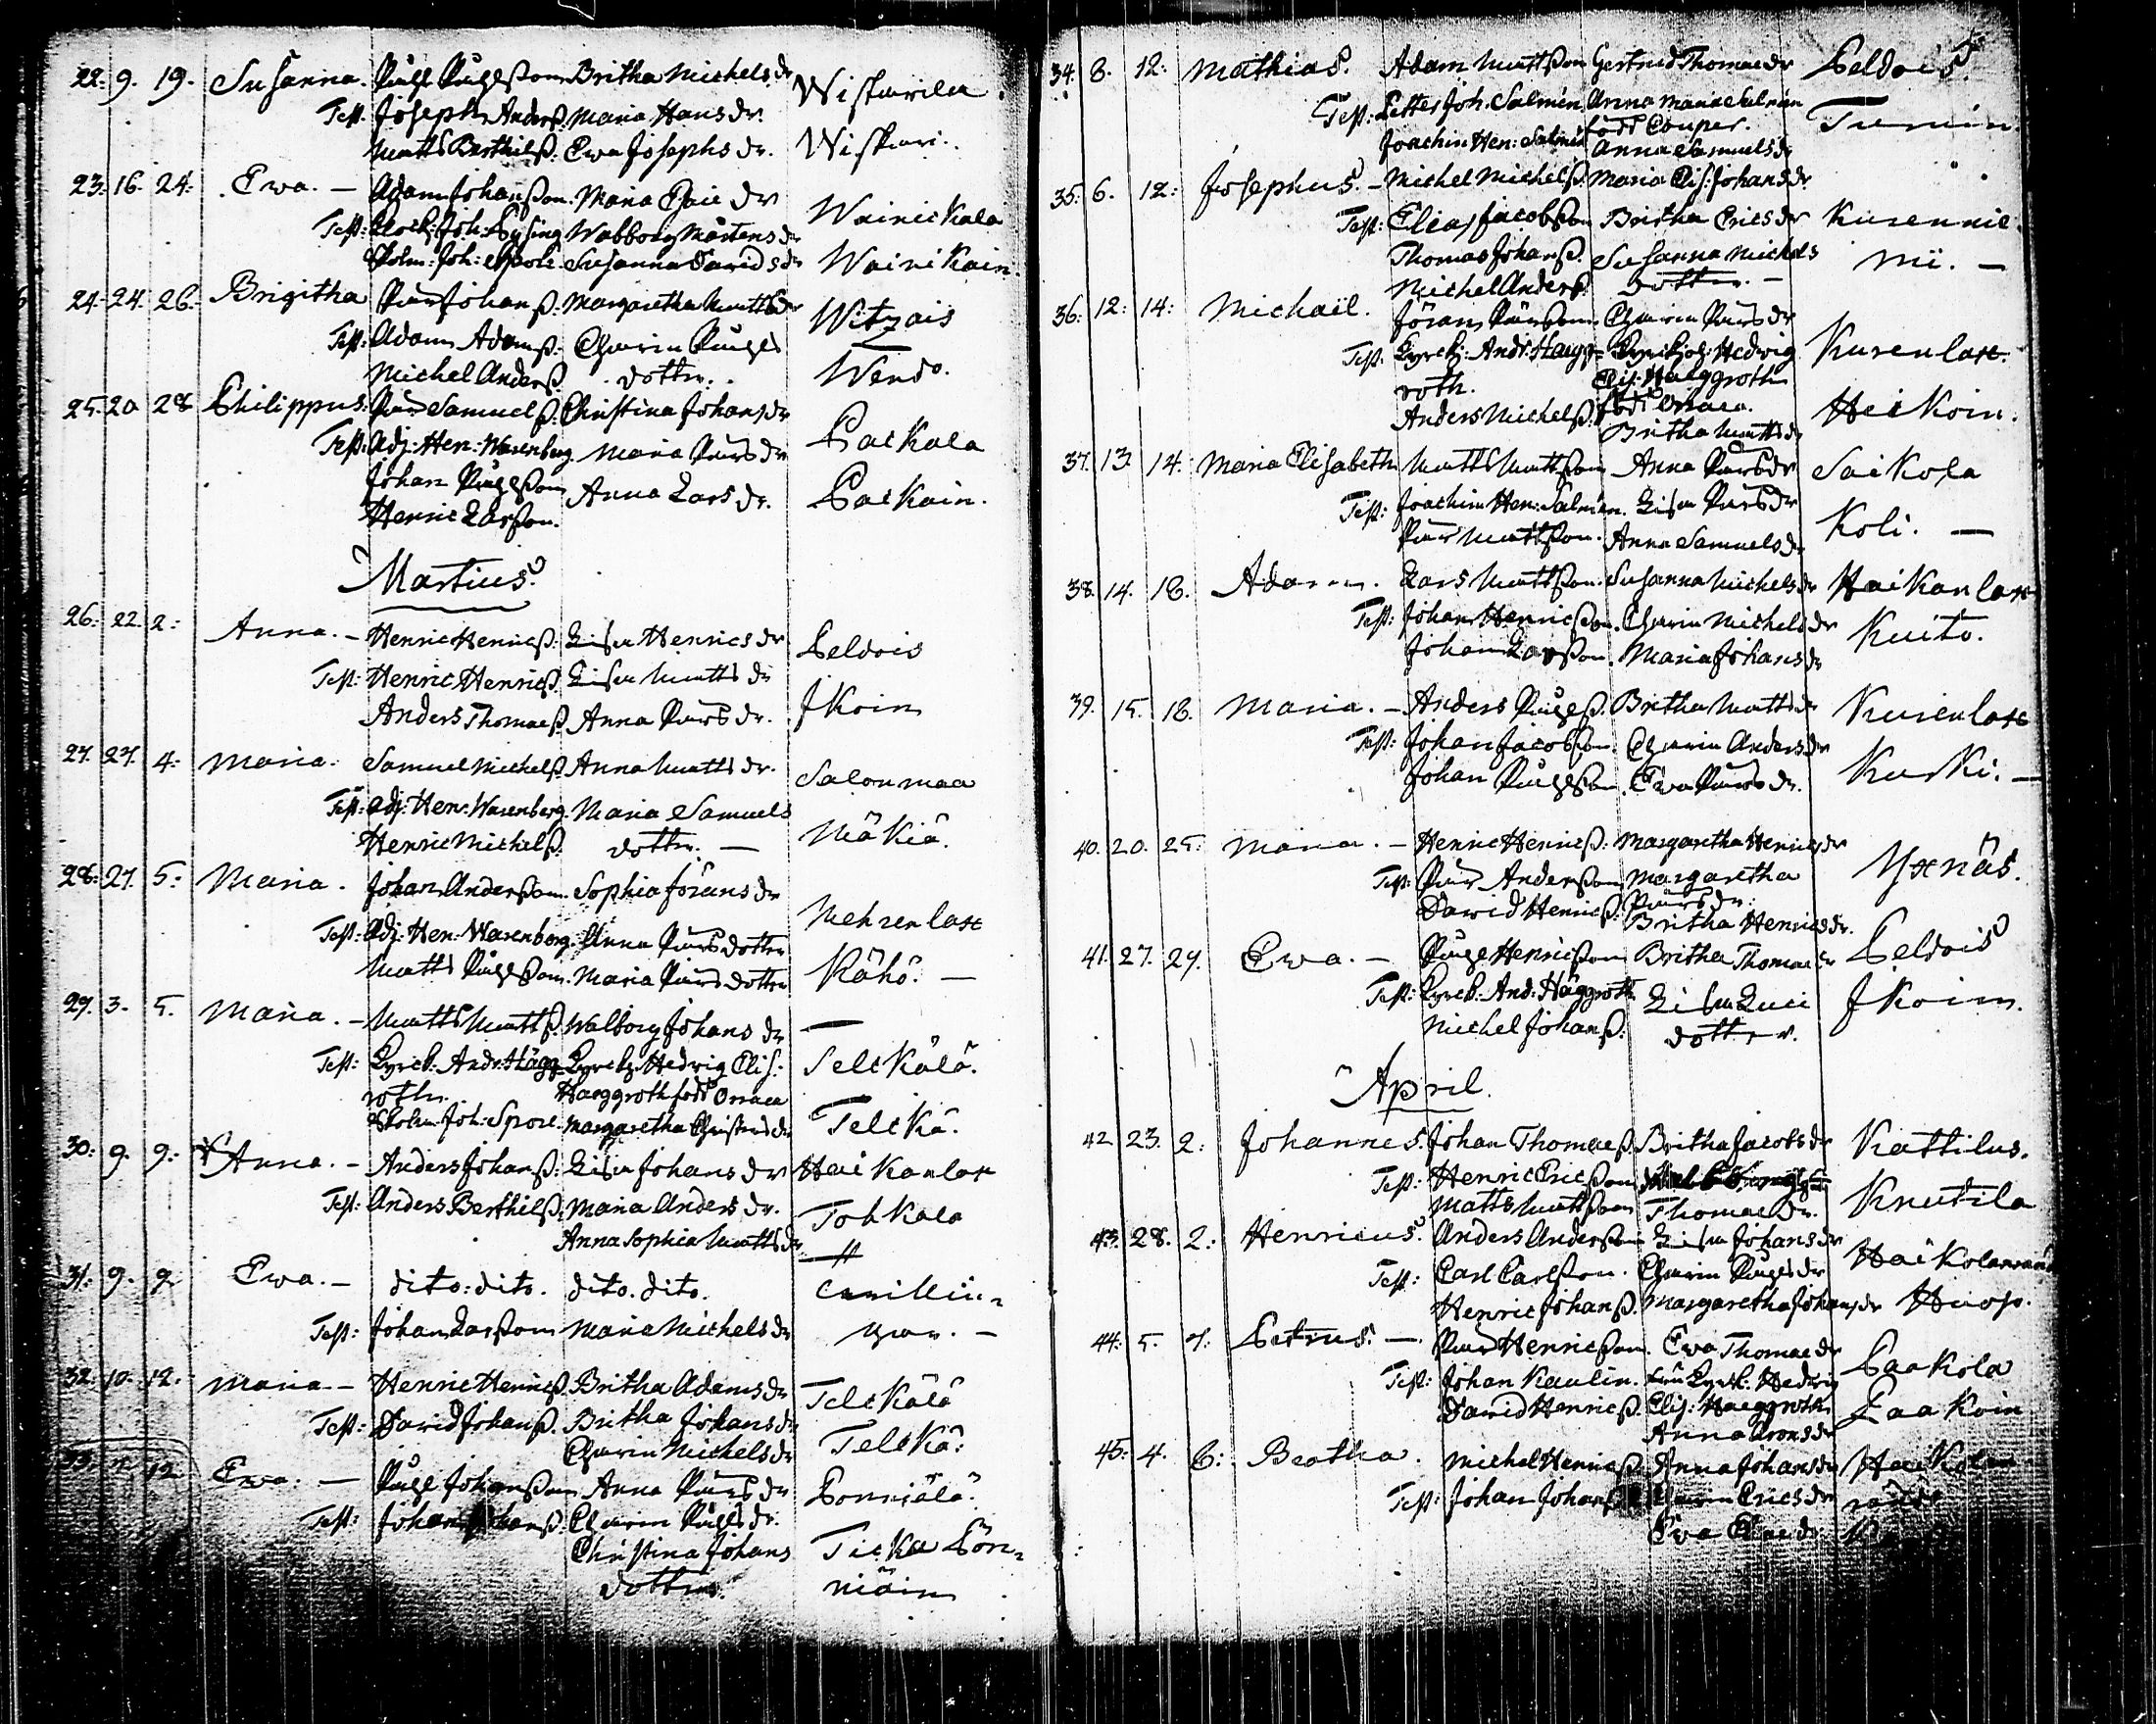 22. 9. 19. Susanna. Påhl Påhlsson Britha Michelsdr Wiskarila
Test. Joseph Anderss. Maria Hansdr.
Matts Berthilss. Ewa Josephsdr. Wiskari.
23. 16. 24. Ewa. — Adam Johansson. Maria Esaiedr Wainickala
Test: Klock: Joh: Lysing Wabborg Mårtensdr
Skolm: Joh: Spole Susanna Davidsdr Wainikain.
24. 24. 26. Brigitha Pär Johanss. Margaretha Mattsdr Witzais
Test: Adam Adamss. Charin Påhls
Michel Anderss. dotter. Wendo.
25. 20 28 Philippus. Pär Samuelss. Christina Johansdr
Test. Adj: Hen: Warenberg. Maria Pärsdr Packala
Johan Påhlsson Anna Larsdr. Packain.
Henric Larsson.
Martius.
26. 22. 2. Anna. — Henric Henricss. Lisa Henricsdr Peldois
Test: Henric Henricss. Lisa Mattsdr
Anders Thomaess. Anna Pärsdr. Ikoin
27. 27. 4. Maria. Samuel Michelss. Anna Mattsdr. Salonmaa
Test: Adj: Hen: Warenberg. Maria Samuels
Henric Michelss. dotter. — Mäkiä.
28. 27. 5. Maria. Johan Andersson. Sophia Jöransdr
Test: Adj: Hen: Warenberg. Anna Pärsdotter Mehrenlax
Matts Påhlsson. Maria Pärsdotter Kähö. —
29. 3. 5. Maria. — Matts Mattss. Walborg Johansdr —
Test: Kyrck: Andr: Hägg= Kyrckh: Hedvig Elis: Selckälä.
roth. Haeggroth född Orraea
Skolm: Joh: Spole. Margaretha Christersdr Telckä.
30. 9. 9. Anna. — Anders Johanss. Lisa Johansdr Haikanlax
Test: Anders Berthilss. Maria Andersdr. Tohkala
Anna Sophia Mattsdr
31. 9. 9 Ewa. — dito: dito. dito. dito.
Test: Johan Larsson Maria Michelsdr
32. 10. 12. Maria — Henric Henricss. Britha Adamsdr Telckälä
Test: David Johanss. Britha Johansdr
Charin Michelsdr Telckä.
33. 12. Ewa. — Påhl Johansson Anna Pärsdr Ponniälä.
Test: Johan Johanss. Charin Påhlsdr.
Christina Johans Ticka Pon=
dotter. niäin
34. 8. 12. Mathias. Adam Mattsson Gertrud Thomaedr Peldois.
Test: Petter Joh. Salmén. Anna Maria Salmén Tumin.
Joachim Hen: Salmén född Couper.
Anna Samuelsdr
35. 6. 12. Josephus. — Michel Michelss. Maria Elis: Johansdr
Test: Elias Jacobsson Britha Ericsdr Kurennie=
Thomas Johanss. Susanna Michels mi. —
Michel Anderss. dotter. —
36. 12. 14. Michaël. Jöran Pärsson Charin Pärsdr
Test: Kyrckh: Andr: Haegg= Kyrckjoh: Hedwig Kurenlax.
roth. Elis: Haeggroth
Anders Michelss. född Orraea. Heikoin.
Britha Mattsdr
37. 13. 14. Maria Elisabeth Matts Mattsson Anna Pärsdr Saikola
Test: Joachim Hen: Salmén. Lisa Pärsdr
Pär Mattsson. Anna Samuelsdr Koli. —
38. 14. 18. Adam. Lars Mattsson. Susanna Michelsdr Haikanlax
Test: Johan Henricsson. Charin Michelsdr
Johan Larsson. Maria Johansdr Kuito.
39. 15. 18. Maria. — Anders Påhlss. Britha Mattsdr Kurenlax
Test: Johan Jacobsson. Charin Andersdr
Johan Påhlsson. Ewa Pärsdr. Kurki. —
40. 20. 25. Maria. — Henric Henricss. Margaretha Henricsdr
Test: Pär Andersson Margaretha Yxnäs.
David Henricss. Pärsdr.
Britha Henricsdr.
41. 27. 29. Ewa. — Påhl Henricsson Britha Thomaedr Peldois
Test: Kyrck: And: Häggroth Lisa Luci
Michel Johanss. dotter. Ikoin.
April.
42 23. 2. Johannes. Johan Thomaess. Britha Jacobsdr Kattilus.
Test: Henric Ericsson
Matts Mattsson Thomaedr. Knutila
43. 28. 2. Henricus. Anders Andersson Lisa Johansdr
Test: Carl Carlsson. Charin Påhlsdr
Henric Johanss. Margaretha Johansdr
44. 5. 7. Petrus. — Pär Henricsson. Ewa Thomaedr
Test: Johan Kaulin. Fru Kyrck: Hedwig Paakola
David Henricss. Elis: Haeggroth Paakoin
Anna Aronsdr
45. 4. 6. Beatha. Michel Henricss. Anna Johansdr
Test: Johan Johanss. Charin Ericsdr
Ewa